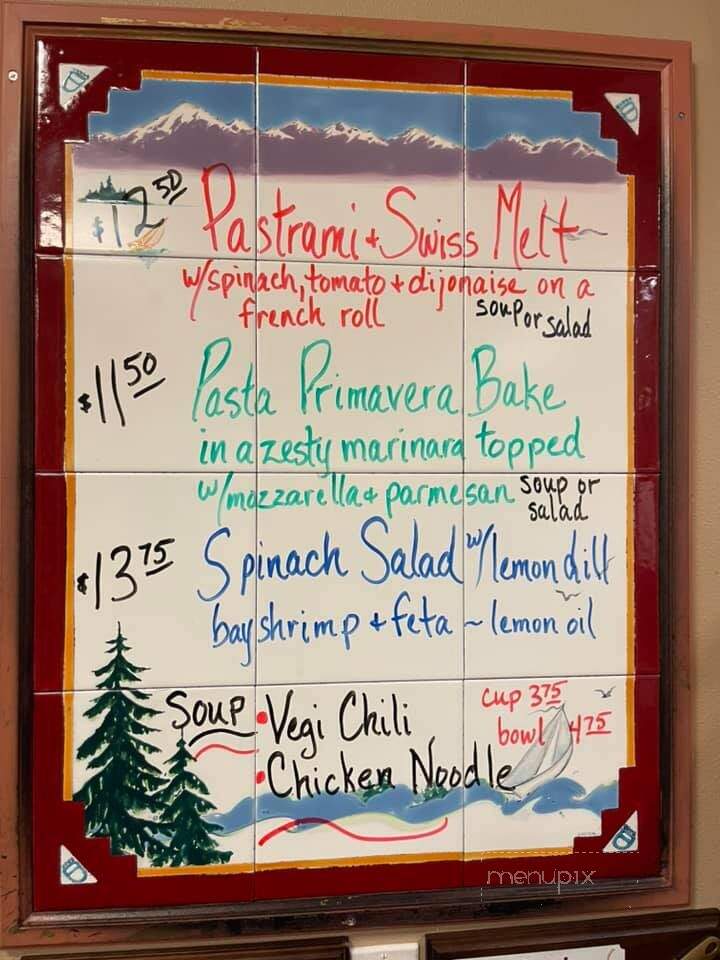 $12.50 Pastrami + Swiss Melt
w/spinach, tomato + dijonaise on a
french roll soup or salad
$11.50 Pasta Primavera Bake
in a zesty marinara topped
w/mozzarella + parmesan soup or
salad
$13.75 Spinach Salad w/lemon dill
bay shrimp + feta ~ lemon oil
Soup • Vegi Chili cup 3.75
bowl 4.75
• Chicken Noodle
menupix